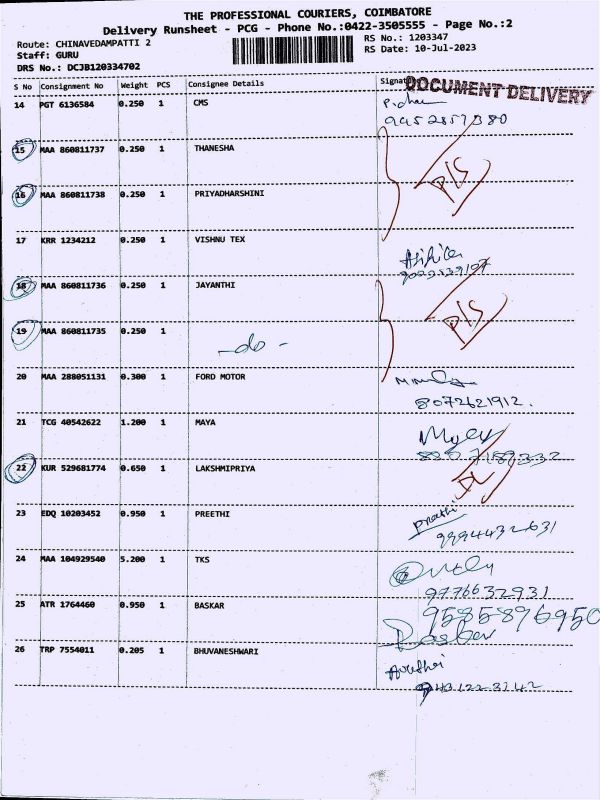 THE PROFESSIONAL COURIERS, COIMBATORE
Delivery Runsheet - PCG - Phone No.:0422-3505555 - Page No.:2
Route: CHINAVEDAMPATTI 2 RS No.: 1203347
Staff: GURU RS Date: 10-Jul-2023
DRS No.: DCJB120334702
S No Consignment No Weight PCS Consignee Details Signature
DOCUMENT DELIVERY
14 PGT 6136584 0.250 1 CMS
9952857380
15 MAA 860811737 0.250 1 THANESHA
P/S
16 MAA 860811738 0.250 1 PRIYADHARSHINI
17 KRR 1234212 0.250 1 VISHNU TEX
18 MAA 860811736 0.250 1 JAYANTHI
P/S
19 MAA 860811735 0.250 1
-do-
20 MAA 288051131 0.300 1 FORD MOTOR
8072621912.
21 TCG 40542622 1.200 1 MAYA
22 KUR 529681774 0.650 1 LAKSHMIPRIYA
DL
23 EDQ 10203452 0.950 1 PREETHI
Preethi
9994432631
24 MAA 104929540 5.200 1 TKS
9776632931
25 ATR 1764460 0.950 1 BASKAR
9585896950
Baskar
26 TRP 7554011 0.205 1 BHUVANESHWARI